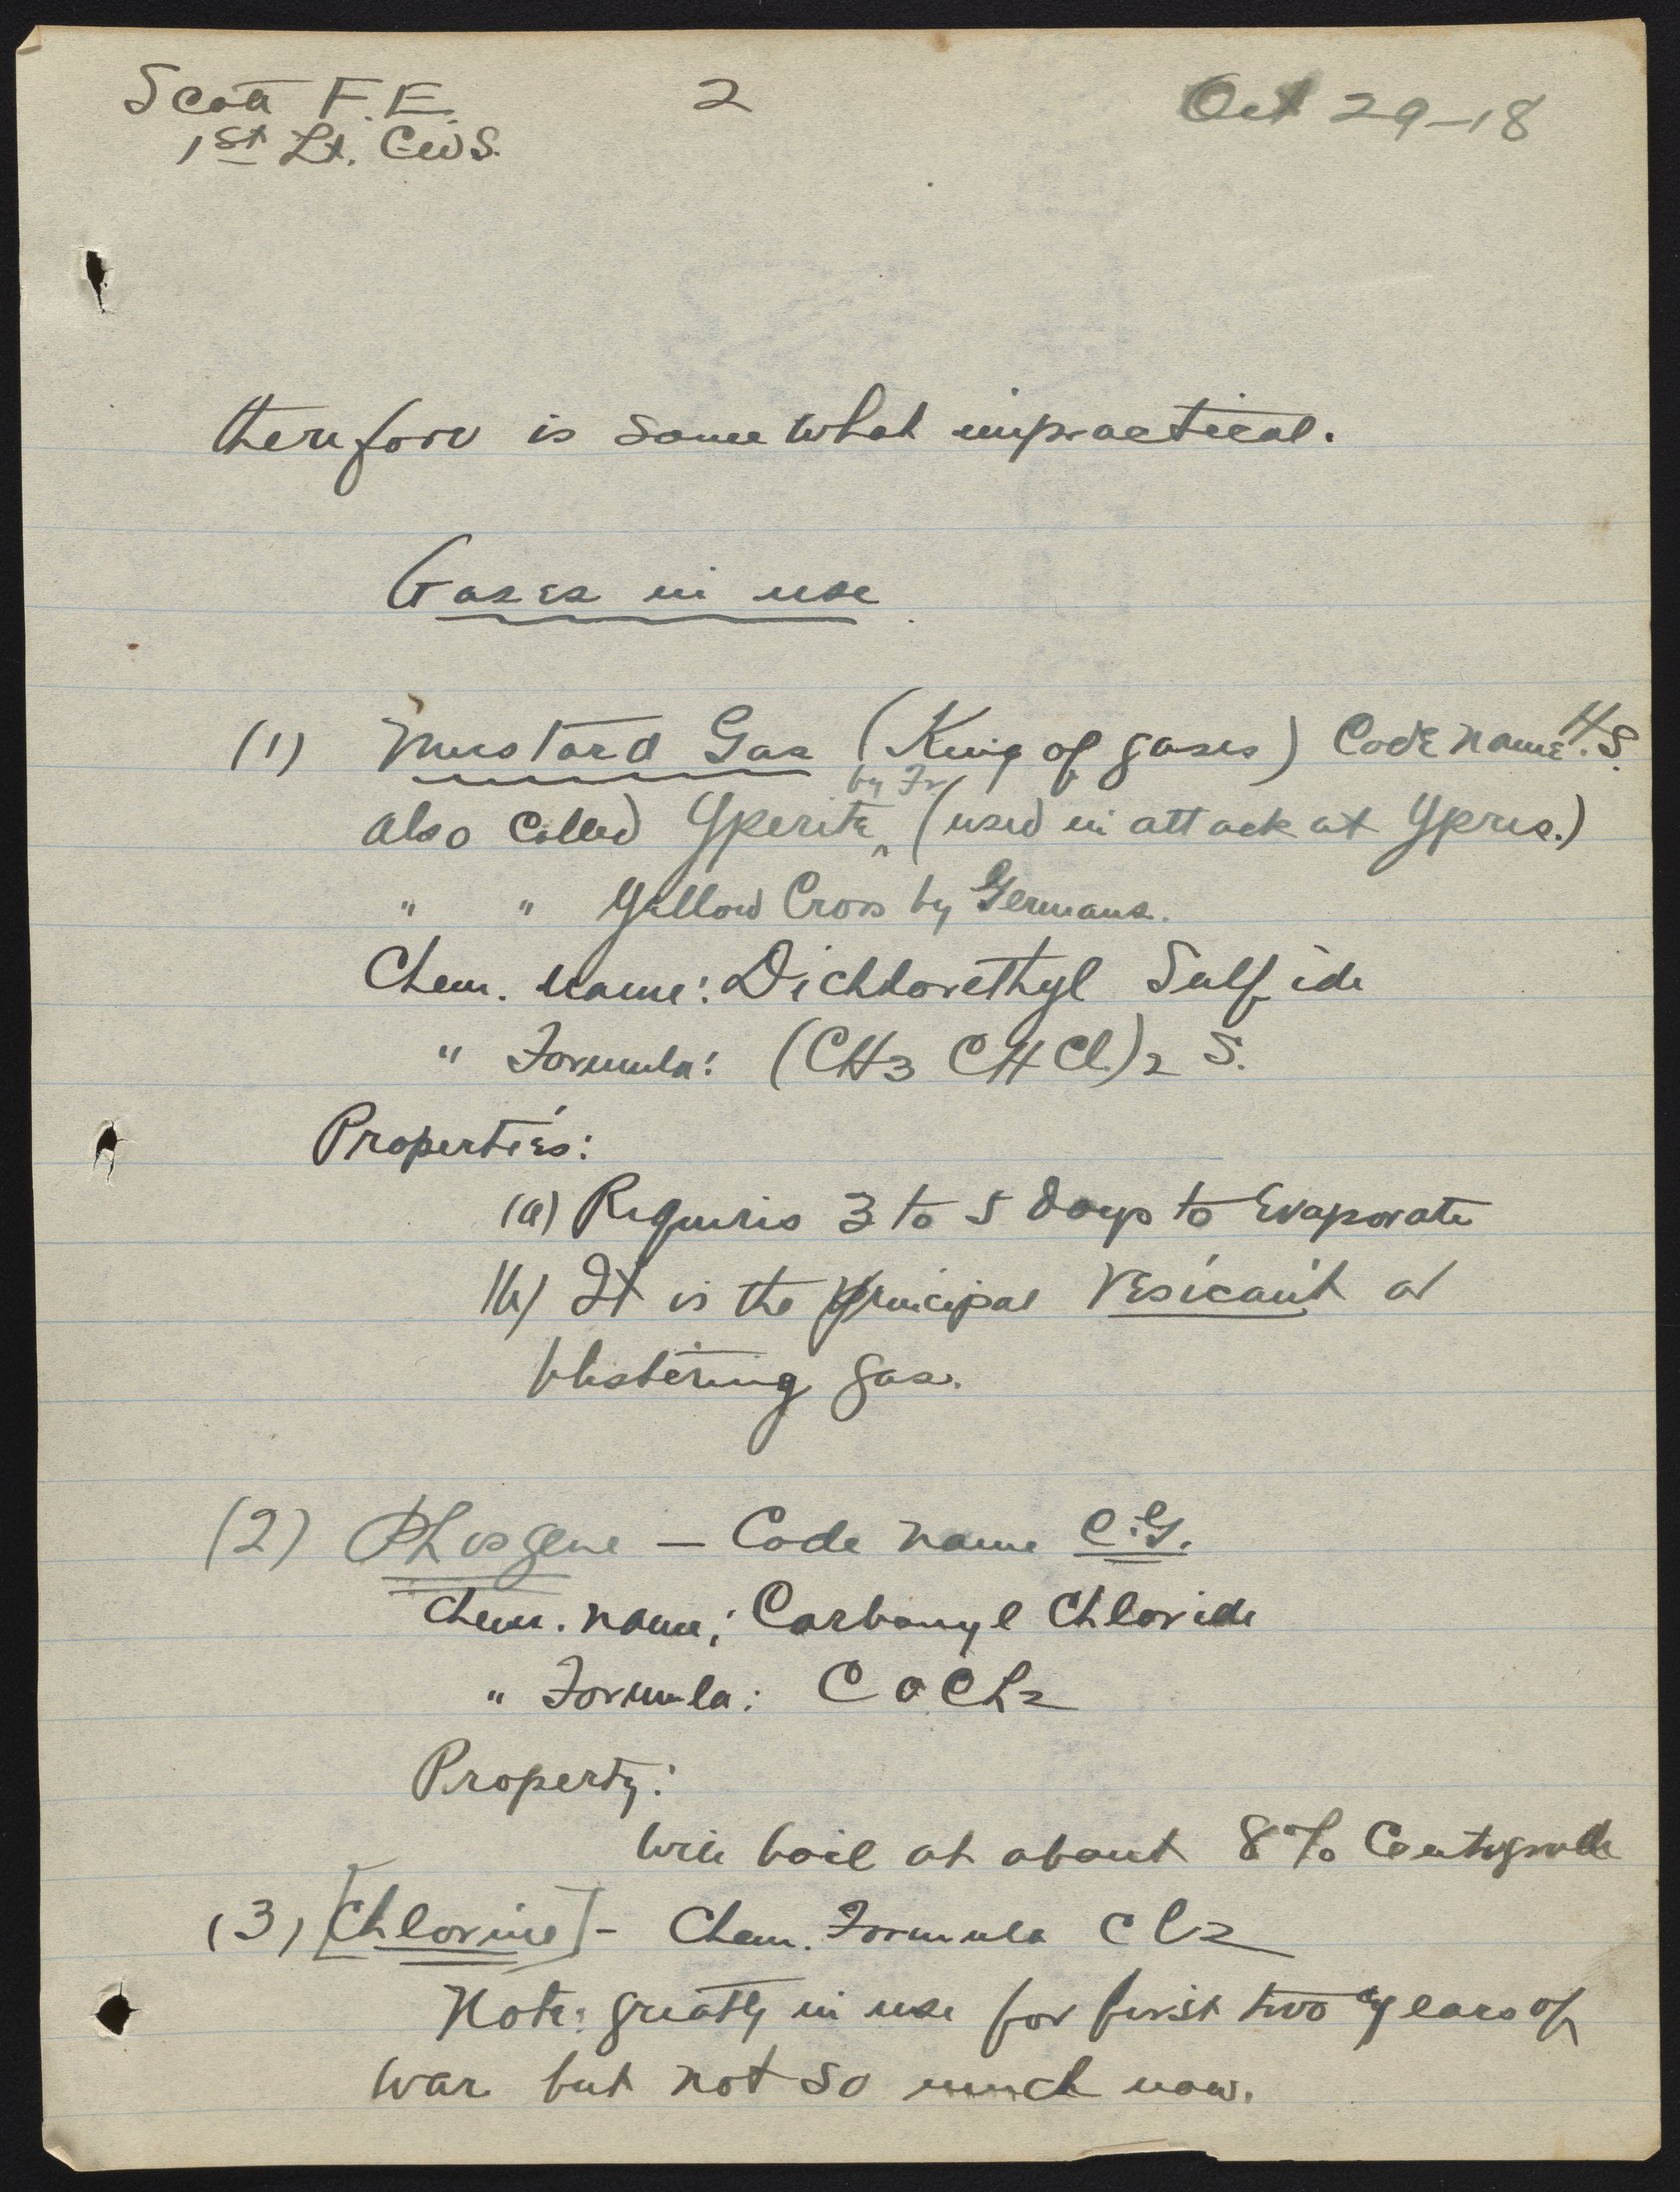 Scott F.E. 2 Oct 29-18
1st Lt. C.W.S.
therefore is somewhat impractical.
Gases in use
(1) Mustard Gas (King of gases) Code name H.S.
by Fr
also called Yperite ^ (used in attack at Ypres.)
" " Yellow Cross by Germans.
Chem. Name: Dichlorethyl Sulfide
" Formula: (CH3 CH Cl)2 S.
Properties:
(a) Requires 3 to 5 days to Evaporate
(b) It is the principal Vesicant or
blistering gas.
(2) Phosgene — Code name C.G.
Chem. name; Carbonyl Chloride
" Formula: C O Cl2
Property:
Will boil at about 8% Centigrade
(3) [Chlorine] - Chem. Formula Cl2
Note: greatly in use for first two years of
war but not so much now.